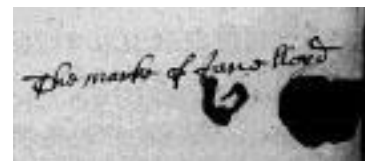 The marke of Jane lloyd